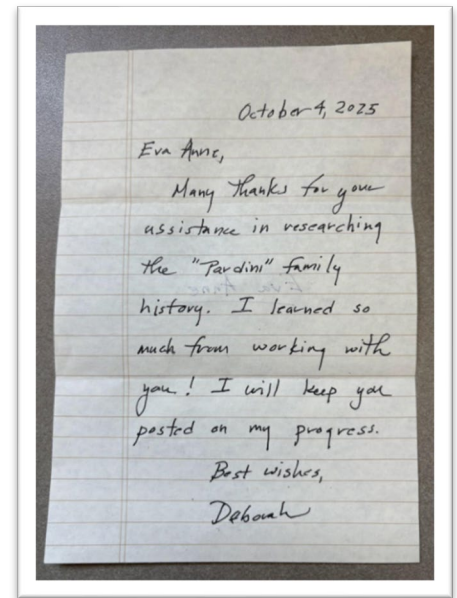 October 4, 2025
Eva Anne,
Many thanks for your
assistance in researching
the "Pardini" family
history. I learned so
much from working with
you! I will keep you
posted on my progress.
Best wishes,
Deborah